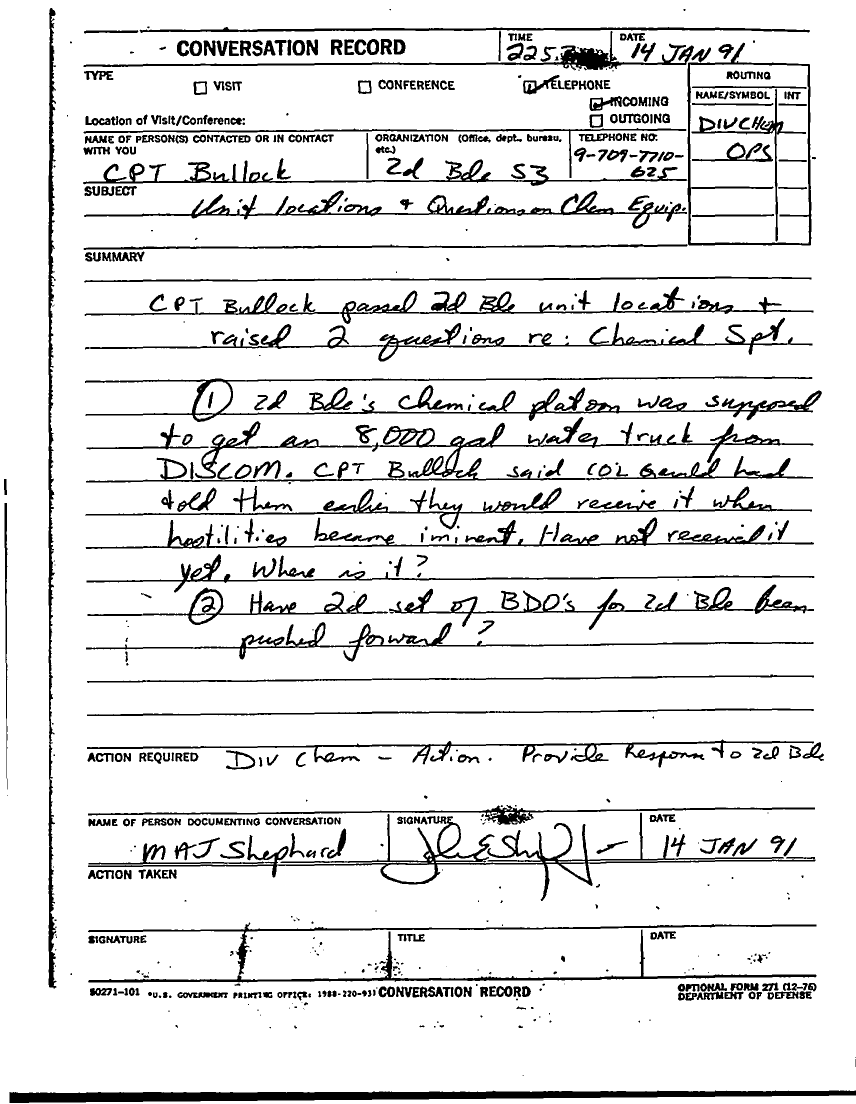 CONVERSATION RECORD
TIME
DATE
14 JAN 91
TYPE
VISIT
CONFERENCE
TELEPHONE
INCOMING
OUTGOING
ROUTING
NAME/SYMBOL INT
DIV CHEM
OPS
Location of Visit/Conference:
NAME OF PERSON(S) CONTACTED OR IN CONTACT WITH YOU
CPT Bullock
ORGANIZATION (Office, dept., bureau, etc.)
2d Bde S3
TELEPHONE NO:
9-709-7710-
625
SUBJECT
Unit locations + Questions on Chem Equip.
SUMMARY
CPT Bullock passed 2d Bde unit locations +
raised 2 questions re: Chemical Spt.
① 2d Bde's chemical platoon was supposed
to get an 8,000 gal water truck from
DISCOM. CPT Bullock said COL had
told them earlier they would receive it when
hostilities became iminent. Have not received it
yet. Where is it?
② Have 2d set of BDO's for 2d Bde been
pushed forward?
ACTION REQUIRED Div Chem - Action. Provide Response to 2d Bde
NAME OF PERSON DOCUMENTING CONVERSATION
MAJ Shephard
SIGNATURE
DATE
14 JAN 91
ACTION TAKEN
SIGNATURE
TITLE
DATE
50271-101 *U.S. GOVERNMENT PRINTING OFFICE: 1988-220-937 CONVERSATION RECORD
OPTIONAL FORM 271 (12-76)
DEPARTMENT OF DEFENSE